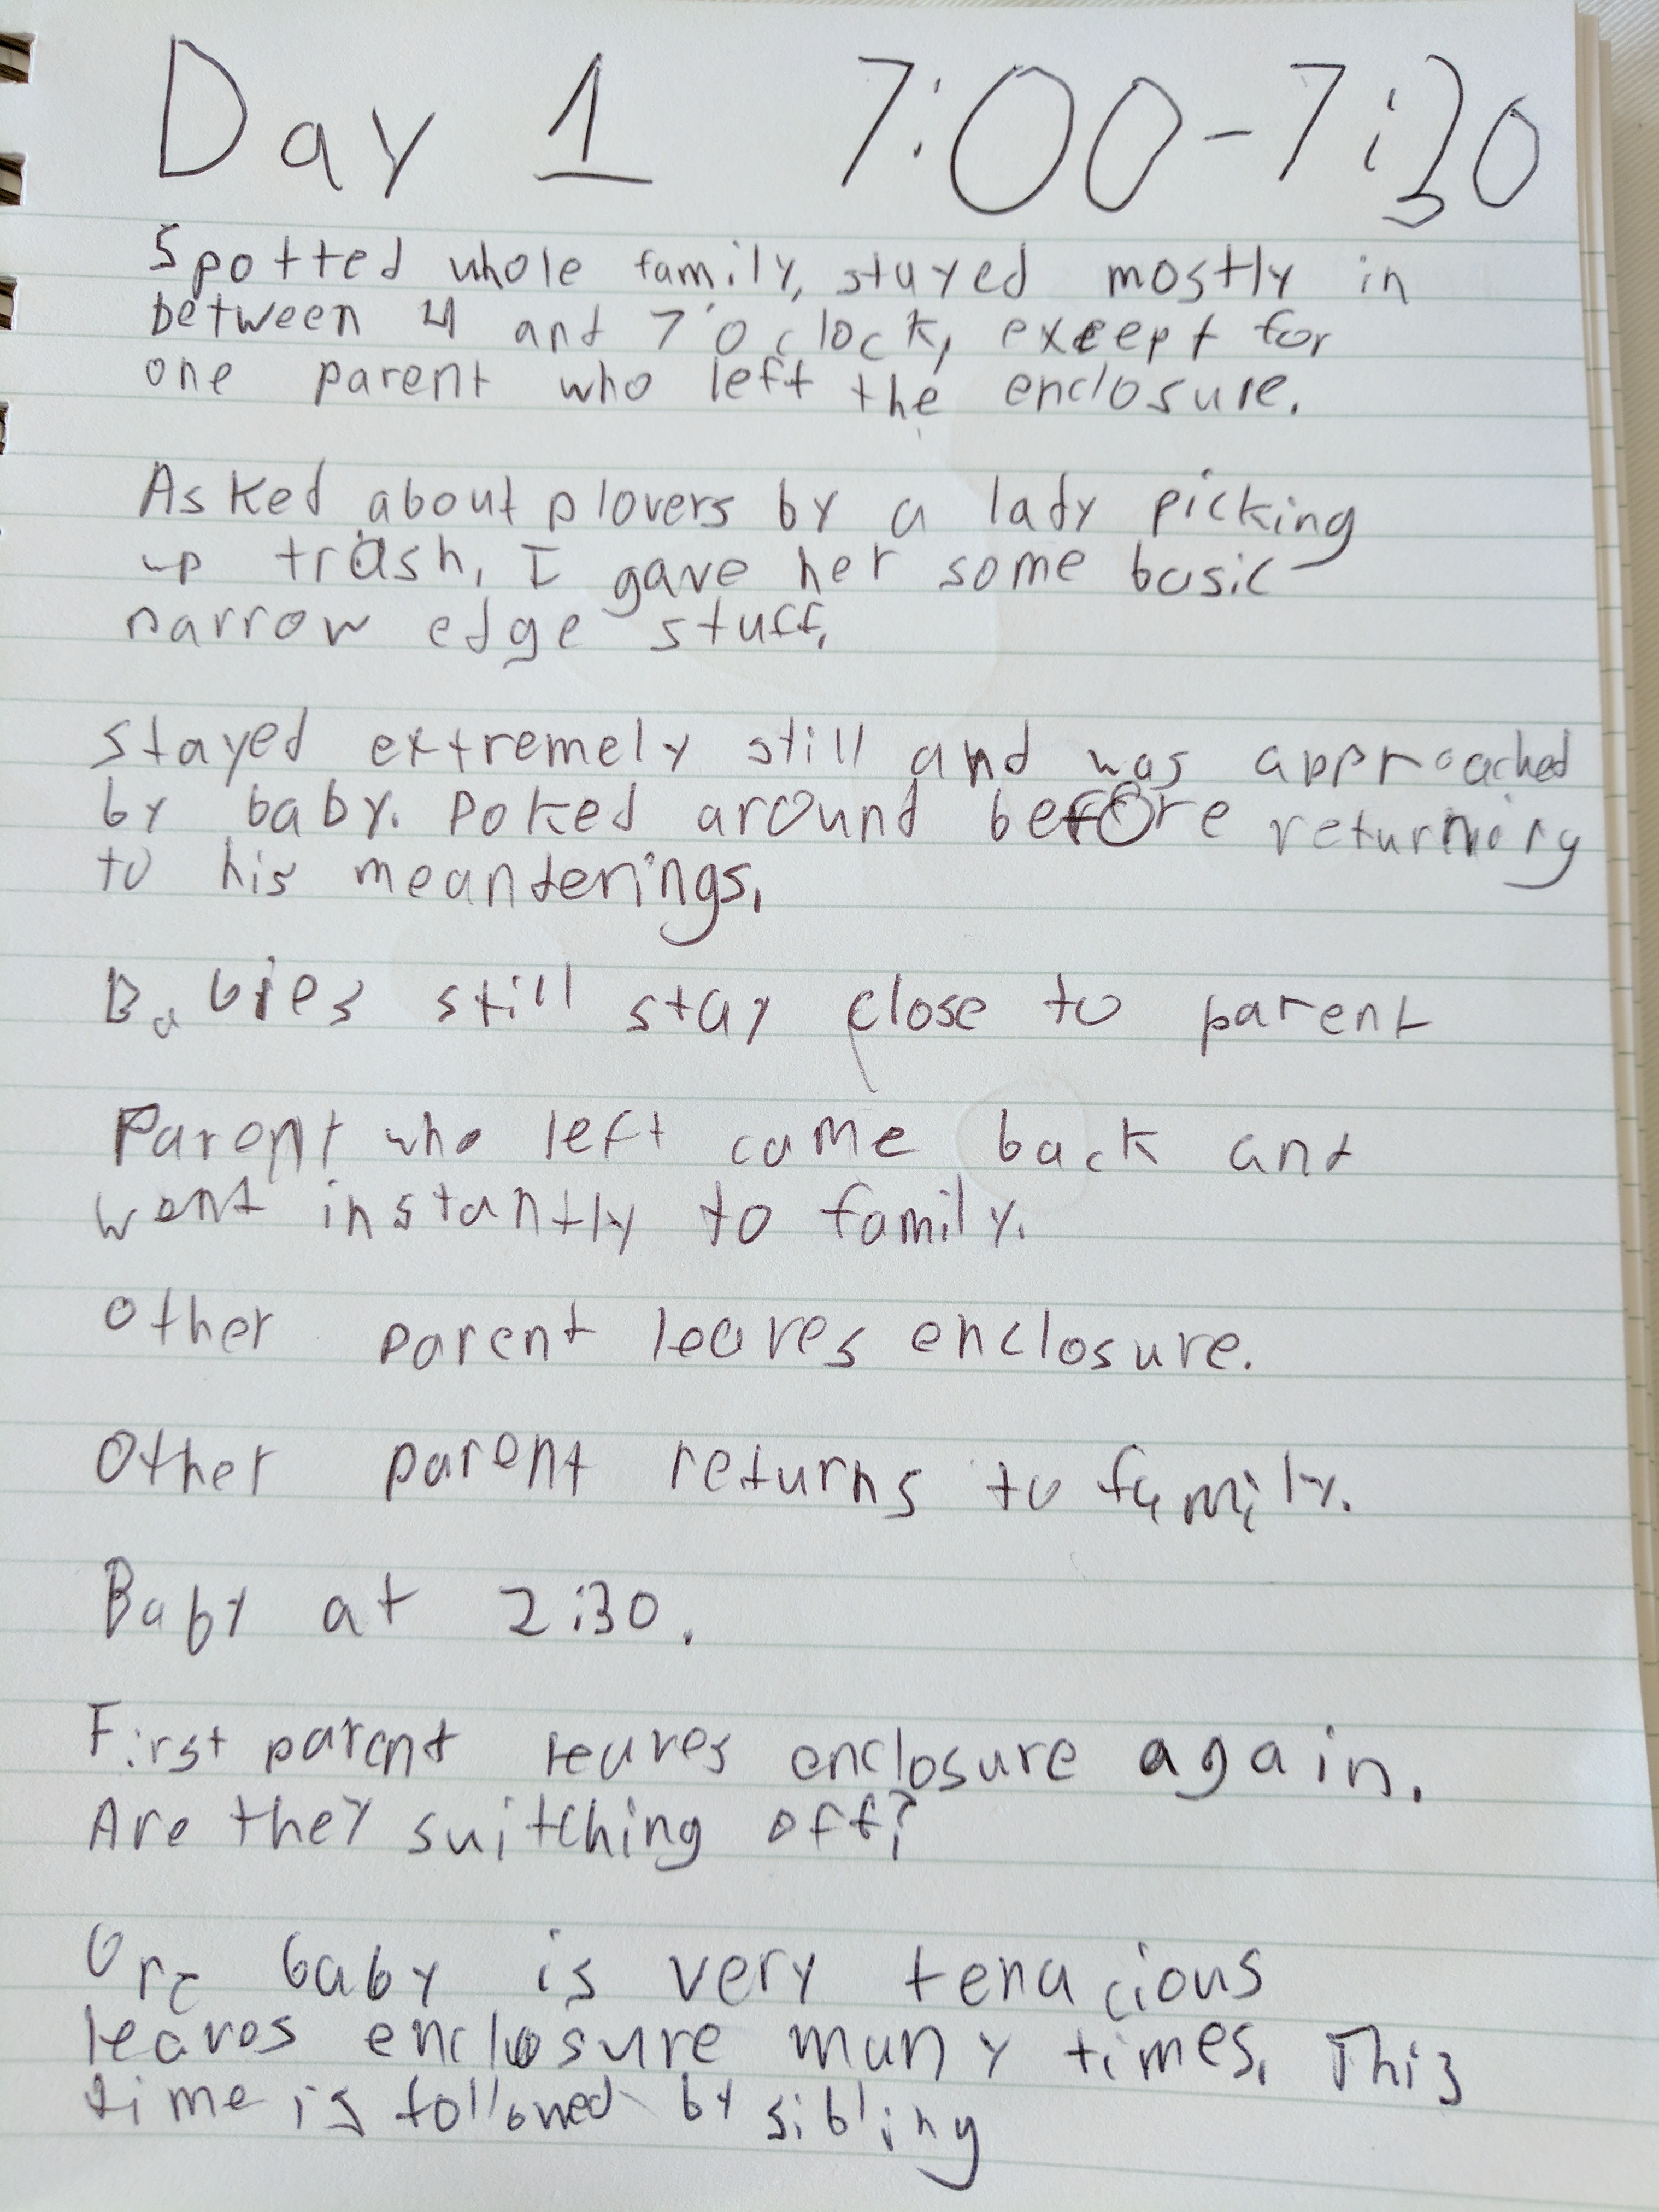 Day 1 7:00-7:30
Spotted whole family, stayed mostly in
between 4 and 7 o'clock, except for
one parent who left the enclosure.
Asked about plovers by a lady picking
up trash, I gave her some basic
narrow edge stuff.
Stayed extremely still and was approached
by baby. Poked around before returning
to his meanderings.
Babies still stay close to parent
Parent who left came back and
went instantly to family.
Other parent leaves enclosure.
Other parent returns to family.
Baby at 2:30.
First parent leaves enclosure again.
Are they suitching off?
One baby is very tenacious
leaves enclosure many times. This
time is followed by sibling